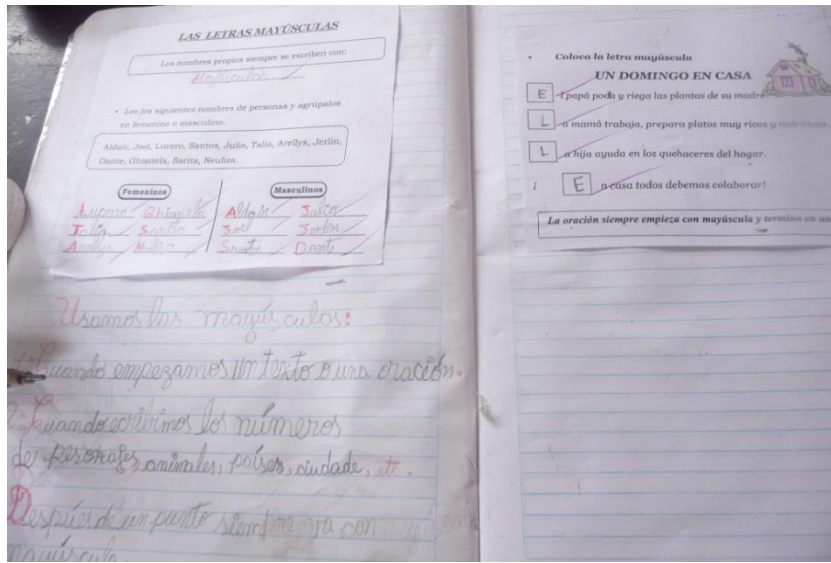 LAS LETRAS MAYÚSCULAS
Los nombres propios siempre se escriben con:
Mayúsculas
• Lee los siguientes nombres de personas y agrúpalos
en femenino o masculino.
Aldair, Joel, Lucero, Santos, Julio, Talia, Arellys, Jerlin,
Dante, Ghianela, Sarita, Neulisa.
Femeninos
Masculinos
Lucero Ghianela Aldair Julio
Talia Sarita Joel Jerlin
Arellys Santos Dante
Usamos las mayúsculas:
1- Cuando empezamos un texto o una oración.
2- Cuando escribimos los números
de pesonajes, animales, países, ciudade, etc.
Después de un punto siempre va con
mayúscula.
• Coloca la letra mayúscula
UN DOMINGO EN CASA
E l papá poda y riega las plantas de su madre.
L a mamá trabaja, prepara platos muy ricos y nutritivos.
L a hija ayuda en los quehaceres del hogar.
¡ E n casa todos debemos colaborar!
La oración siempre empieza con mayúscula y termina en un